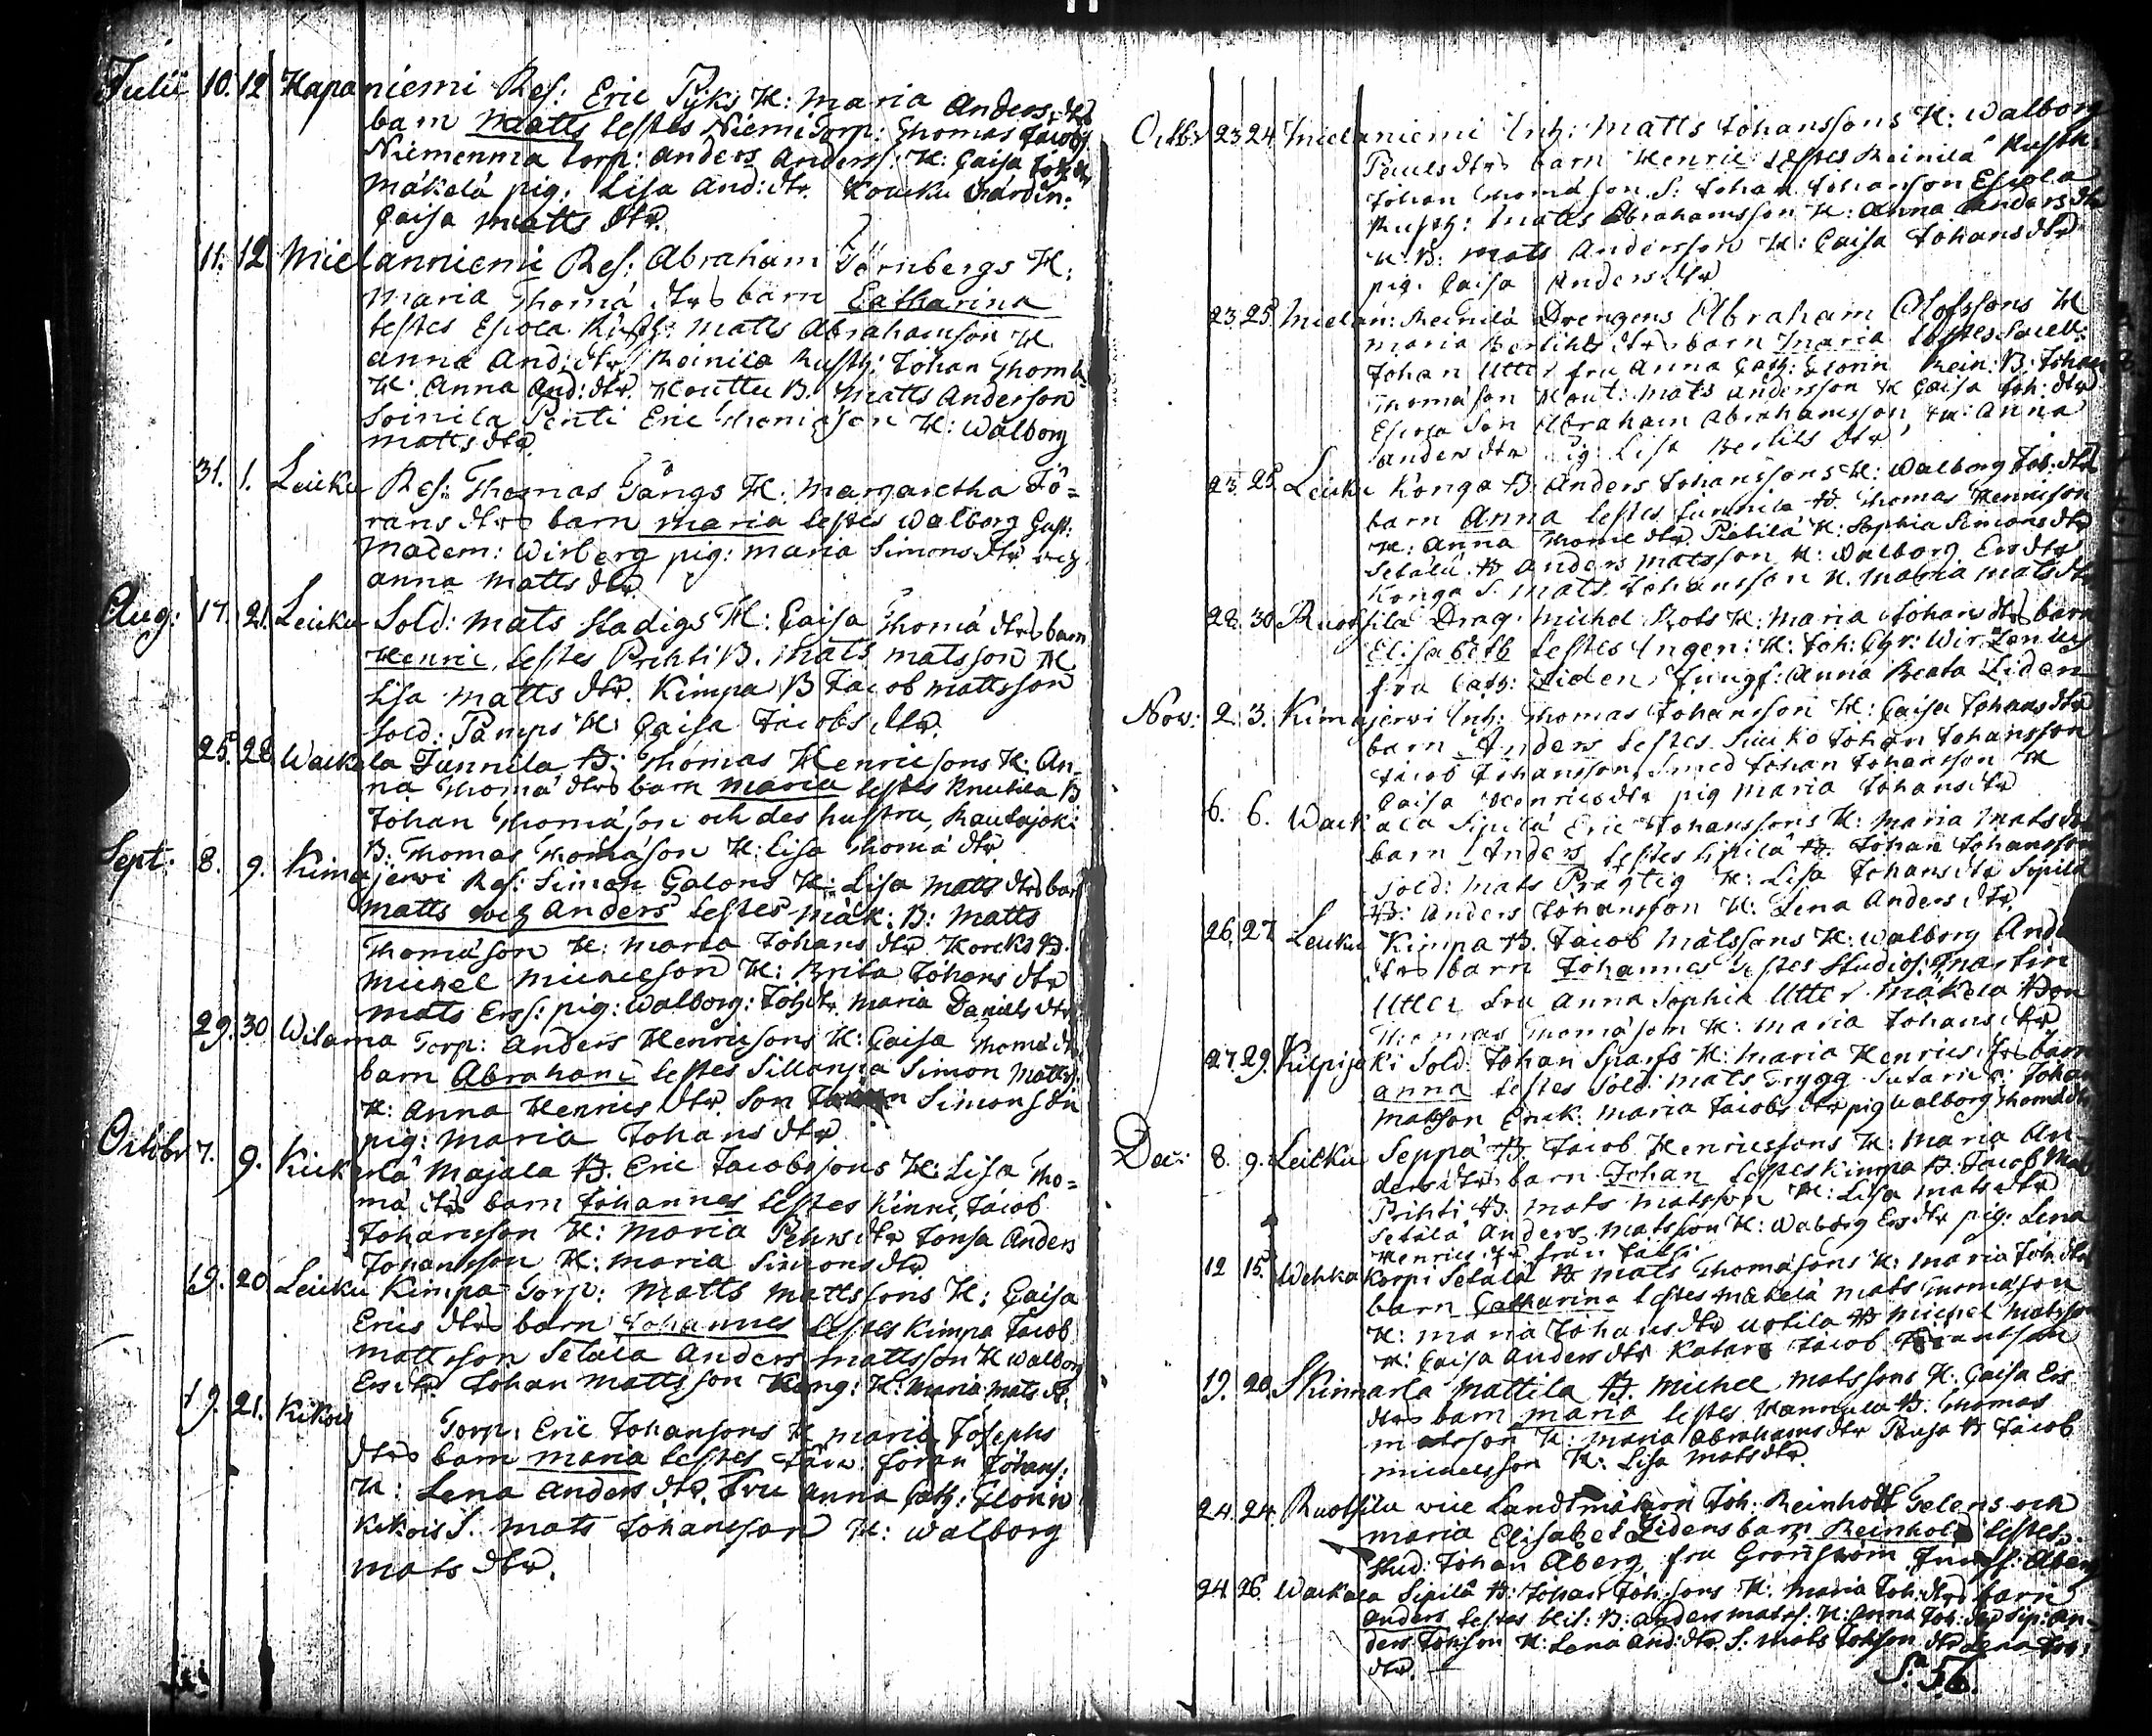 Julii 10. 12 Hapaniemi Ref: Eric Pyks H: Maria Anders dtr
barn Matts testes Niemi Torp: Thomas Jacobs
Niemenma torp: Anders Anderss: H: Caisa Joh dtr
Mäkelä pig: Lisa And: dtr
Caisa Matts dtr.
11. 12 Mielanniemi Ref: Abraham Törnbergs H:
Maria Thomä dtrs barn Catharina
testes Esiola Rusth: Matts Abrahamson H
Anna And: dtr Reinila Rusth: Johan Thomä
H: Anna And: dtr Houttu B. Matts Anderson
Soinila Penti Eric Thomäson H: Walborg
Matts dtr
31. 1. Leuku Ref: Thomas Gångs H: Margaretha Jö=
rans dtrs barn Maria testes Walborg Gust:
Madem: Wirberg pig: Maria Simons dtr
Anna Matts dtr
Aug: 17. 21. Leuku Sold: Mats Stadigs H: Caisa Thomä dtrs barn
Henric, testes Prihti B. Mats Matsson H
Lisa Matts dtr. Kimpa B Jacob Mattsson
Sold: Pamps H: Caisa Jacobs dtr.
25. 28. Waekala Junnila B: Thomas Henricsons H: An
na Thomä dtrs barn Maria testes Knutila B
Johan Thomäson och des hustru, Rautajoki
B: Thomas Thomäson H: Lisa Thomä dtr
Sept: 8. 9. Kimajerwi Ref: Simon Galons H: Lisa Matts dtrs barn
Matts och Anders testes Mäk: B: Matts
Thomäson H: Maria Johans dtr B.
Michel Michelson H: Brita Johans dtr
Mats Erss: pig: Walborg: Joh dtr Maria Daniels dtr
29. 30 Wilama Torp: Anders Henricsons H: Caisa Thomä dtr
barn Abraham testes Sillanpä Simon Matts:
H: Anna Henrics dtr. Son Simonson
pig: Maria Johans dtr
Octobr 7. 9. Kickerlä Majala B. Eric Jacobssons H: Lisa Tho=
mä dtrs barn Johannes testes Kinni Jacob
Johansson H: Maria Pehrs dtr Jonsa Anders
Johansson H: Maria Simons dtr
19. 20 Leuku Kimpa Torp: Matts Mattssons H: Caisa
Erics dtrs barn Johannes testes Kimpa Jacob
Mattsson Setälä Anders Mattsson H Walborg
Ers dtr Johan Mattsson Kong: H: Maria Mats dr.
19. 21. Kikois
Torp: Eric Johansons H Maria Josephs
dtrs barn Maria testes Jöran Johans:
H: Lena Anders dtr. Fru Anna Cath: Florin
Kikois S. Mats Johansson H: Walborg
Mats dtr.
Octbr 23 24 Mielaniemi Inh: Matts Johanssons H: Walborg
Pauls dtrs barn Henric testes Reinilä Rusth:
Johan Thomäson S: Johan Johanson Esiola
Rusth: Matts Abrahamsson H: Anna Anders dtr
H. B: Mats Andersson H: Caisa Johans dtr
pig: Caisa Anders dtr
23. 25. Mielan: Reinilä Drengens Abraham Olofssons H
Maria Bertils dtrs barn Maria testes
Johan Utter fru Anna Cath: Florin Rein: B: Johan
Thomäson Hout: Mats Andersson H Caisa Joh: dtr
Esiola Son Abraham Abrahamsson, H: Anna
Anders dtr Pig: Lisa Bertils dtr
23. 25 Leuku Konga B: Anders Johanssons H: Walborg Joh: dtrs
barn Anna testes Junnila B. Thomas Henricsson
H: Anna Thomä dtr Pietilä H: Sophia Simons dtr
Setälä B Anders Matsson H: Walborg Ers dtr
Konga S. Mats Johansson H. Maria Mats dtr
28. 30 Ruohsila Drag. Michel Rots H: Maria Johans dtrs barn
Elisabeth testes Ingen: H: Joh: Chr:
fru Cath: Liden, Jungf: Anna Beata Liden
Nov: 2. 3. Kimajerwi Inh: Thomas Johansson H: Caisa Johans dtrs
barn Anders testes Johan Johansson
Jacob Johansson, Smed Johan Johansson H
Caisa Henrics dtr pig Maria Johans dtr
6. 6. Waekala Sipilä Eric Johanssons H: Maria Mats dtrs
barn Anders testes Sipilä B. Johan Johansson
Sold: Mats Prägtig H: Lisa Johans dtr Sipilä
B: Anders Johansson H: Lena Anders dtr.
26. 27 Leuku Kimpa B. Jacob Matssons H: Walborg Ande
dtrs barn Johannes testes Studios: Martin
Utter fru Anna Sophia Utter Mäkelä Bon
Thomas Thomäson H: Maria Johans dtr
27. 29. Kilpijoki Sold: Johan Sparfs H: Maria Henrics dtrs barn
Anna testes Sold: Mats Trygg Johan
Matsson Enck: Maria Jacobs dtr pig Walborg Thomä dtr
Dec: 8. 9. Leuku Seppä B. Jacob Henricssons H: Maria An
ders dtrs barn Johan testes Kimpa B. Jacob Mats
Prihti B. Mats Matsson H: Lisa Mats dtr
Setälä Anders Matsson H: Walborg Ers dtr pig: Lena
Henrics dtr från
12 15. Wehkakorpi Setälä B Mats Thomäsons H: Maria Joh dtrs
barn Catharina testes Mäkelä Mats Thomäson
H: Maria Johans dtr Uotila B Michel Matsson
H: Caisa Anders dtr Jacob
19. 20. Skinnarla Mattila B. Michel Matssons H. Caisa Ers
dtrs barn Maria testes Hannula B. Thomas
Matsson H: Maria Abrahams dtr B Jacob
Michelsson H: Lisa Mats dtr.
24. 24. Ruohsila vice Landtmätarn Joh. Reinholt Gelens och
Maria Elisabet Lidens barn Reinhold testes
Stud: Johan Åberg, fru Grönström Jungf: Åberg
24. 26. Waekala Sipilä B: Johan Johssons H: Maria Joh: dtrs barn
Anders testes B: Anders Matss: H: Anna Joh: dtr Sip: An-
ders Johson H: Lena And: dtr. S: Mats Johson dtr Lena Joh:
dtr.
S:a 56.